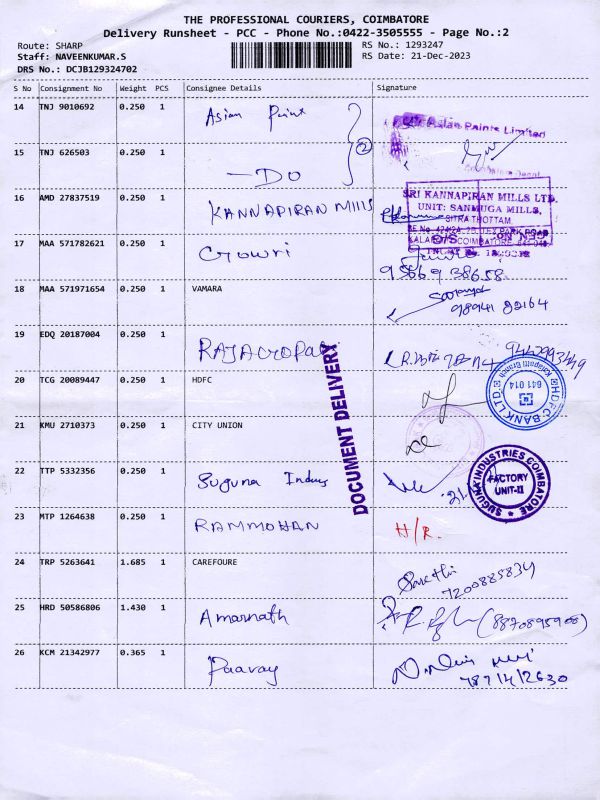 THE PROFESSIONAL COURIERS, COIMBATORE
Delivery Runsheet - PCC - Phone No.:0422-3505555 - Page No.:2
Route: SHARP RS No.: 1293247
Staff: NAVEENKUMAR.S RS Date: 21-Dec-2023
DRS No.: DCJB129324702
S No Consignment No Weight PCS Consignee Details Signature
14 TNJ 9010692 0.250 1 Asian Paint
Asian Paints Limited
15 TNJ 626503 0.250 1 — DO 2
16 AMD 27837519 0.250 1 KANNAPIRAN MILLS
SRI KANNAPIRAN MILLS LTD.
UNIT: SANMUGA MILLS,
SITRA THOTTAM,
17 MAA 571782621 0.250 1 Gowri
95669 38658
18 MAA 571971654 0.250 1 VAMARA
98941 82164
19 EDQ 20187004 0.250 1 RAJAGOPAL
20 TCG 20089447 0.250 1 HDFC
HDFC BANK LTD. Kalapatti Branch 641 014
21 KMU 2710373 0.250 1 CITY UNION
DOCUMENT DELIVERY
22 TTP 5332356 0.250 1 Suguna Indus
SUGUNA INDUSTRIES COIMBATORE
FACTORY
UNIT-II
23 MTP 1264638 0.250 1 RAMMOHAN H/R.
24 TRP 5263641 1.685 1 CAREFOURE
7200885834
25 HRD 50586806 1.430 1 Amarnath (8870895908)
26 KCM 21342977 0.365 1 Paavay
787/4/2630